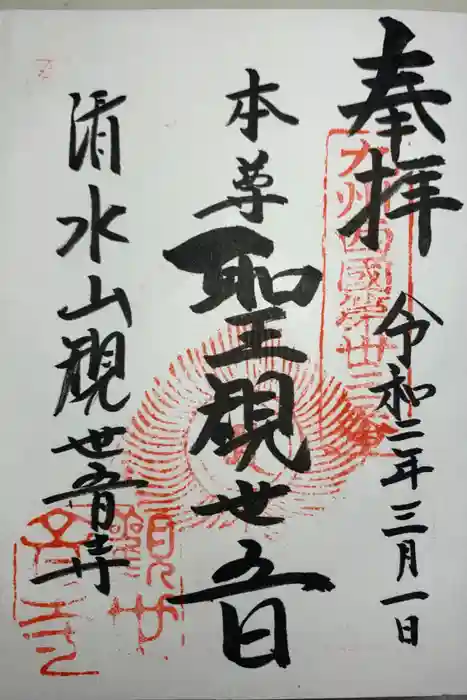 奉拝
令和二年三月一日
九州西國第卅三番
本尊
聖観世音
清水山観世音寺
観世
音寺